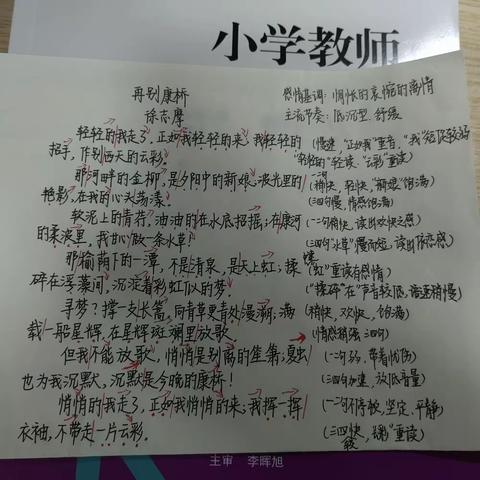 小学教师
再别康桥 感情基调：惆怅的哀惋的离情
徐志摩 主流节奏：低沉型、舒缓
轻轻的我走了，正如我轻轻的来；我轻轻的
招手，作别西天的云彩。 "轻轻的"轻读、"云彩"重读)
那河畔的金柳，是夕阳中的新娘；波光里的 (稍快，轻快，"新娘"饱满)
艳影，在我的心头荡漾。 (三四句慢，情感饱满)
软泥上的青荇，油油的在水底招摇；在康河 (一二句稍快，读出欢快之感)
的柔波里，我甘心做一条水草！
那榆荫下的一潭，不是清泉，是天上虹；揉 "虹"重读有感情)
碎在浮藻间，沉淀着彩虹似的梦。 ("揉碎""在"声音较低，语速稍慢)
寻梦？撑一支长篙，向青草更青处漫溯；满 (稍快，欢快，饱满)
载一船星辉，在星辉斑斓里放歌。 (情感稍强 三四句)
但我不能放歌，悄悄是别离的笙箫；夏虫 (一二句弱，带着忧伤)
也为我沉默，沉默是今晚的康桥！ (三四句加速，放低音量)
悄悄的我走了，正如我悄悄的来；我挥一挥 (一二句不停歇，坚定，平静)
衣袖，不带走一片云彩。
主审 李晖旭